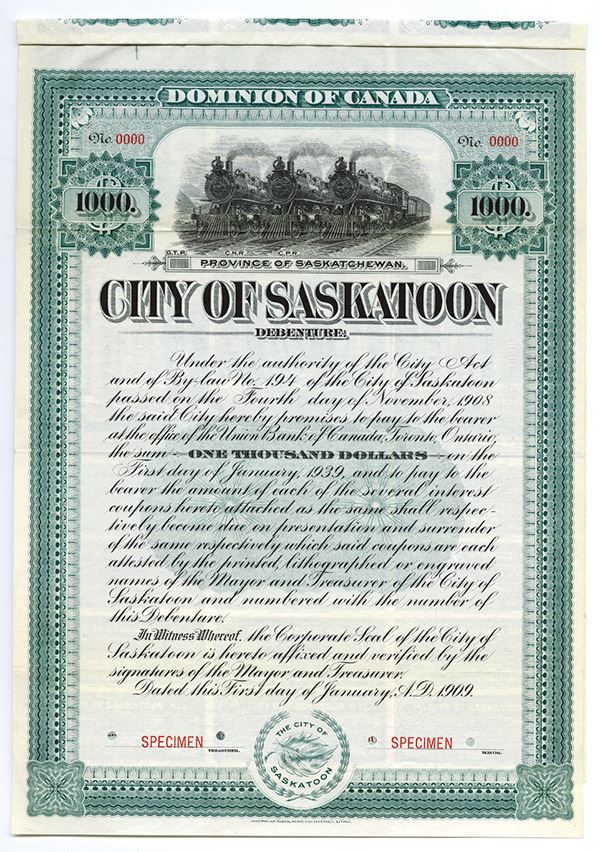 DOMINION OF CANADA
No. 0000
No. 0000
1000.
1000.
G.T.P. C.N.R. C.P.R.
PROVINCE OF SASKATCHEWAN.
CITY OF SASKATOON
DEBENTURE:
Under the authority of the City Act
and of By-law No. 194 of the City of Saskatoon
passed on the Fourth day of November, 1908
the said City hereby promises to pay to the bearer
at the office of the Union Bank of Canada, Toronto, Ontario,
the sum ONE THOUSAND DOLLARS on the
First day of January, 1939, and to pay to the
bearer the amount of each of the several interest
coupons hereto attached as the same shall respec-
tively become due on presentation and surrender
of the same respectively which said coupons are each
attested by the printed, lithographed or engraved
names of the Mayor and Treasurer of the City of
Saskatoon and numbered with the number of
this Debenture.
In Witness Whereof, the Corporate Seal of the City of
Saskatoon is hereto affixed and verified by the
signatures of the Mayor and Treasurer.
Dated this First day of January, A.D. 1909.
SPECIMEN
TREASURER.
THE CITY OF
SASKATOON
SPECIMEN
MAYOR.
AMERICAN BANK NOTE CO. OTTAWA.